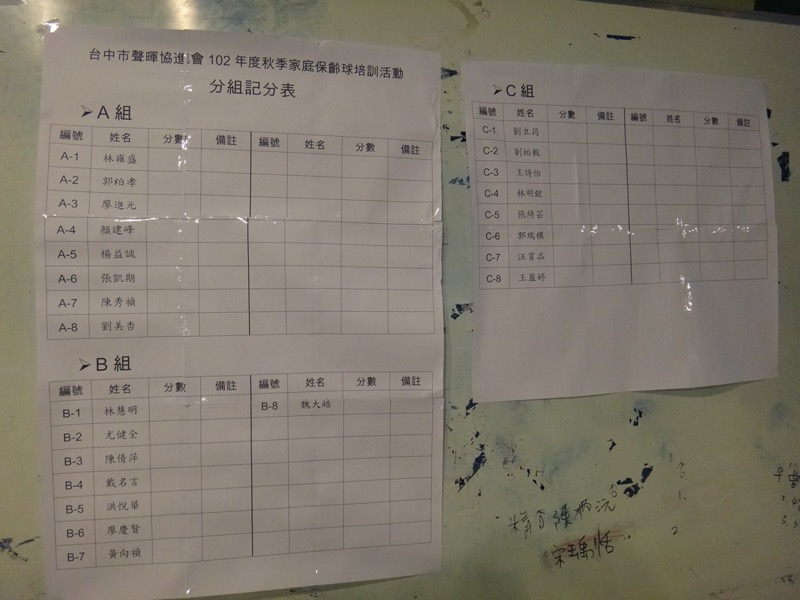 台中市聲暉協進會 102 年度秋季家庭保齡球培訓活動
分組記分表
➢A 組
編號 姓名 分數 備註 編號 姓名 分數 備註
A-1 林雍盛
A-2 郭柏孝
A-3 廖進元
A-4 顏建峰
A-5 楊益誠
A-6 張凱期
A-7 陳秀禎
A-8 劉美杏
➢B 組
編號 姓名 分數 備註 編號 姓名 分數 備註
B-1 林慧明 B-8 魏大皓
B-2 尤健全
B-3 陳倩萍
B-4 戴名言
B-5 洪悅華
B-6 廖慶賢
B-7 黃向楨
➢C 組
編號 姓名 分數 備註 編號 姓名 分數 備註
C-1 劉立筠
C-2 劉柏毅
C-3 王詩怡
C-4 林明鋐
C-5 張綺芸
C-6 郭瑞祺
C-7 汪育品
C-8 王盈婷